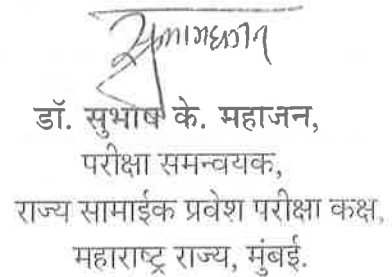 डॉ. सुभाष के. महाजन,
परीक्षा समन्वयक,
राज्य सामाईक प्रवेश परीक्षा कक्ष,
महाराष्ट्र राज्य, मुंबई.